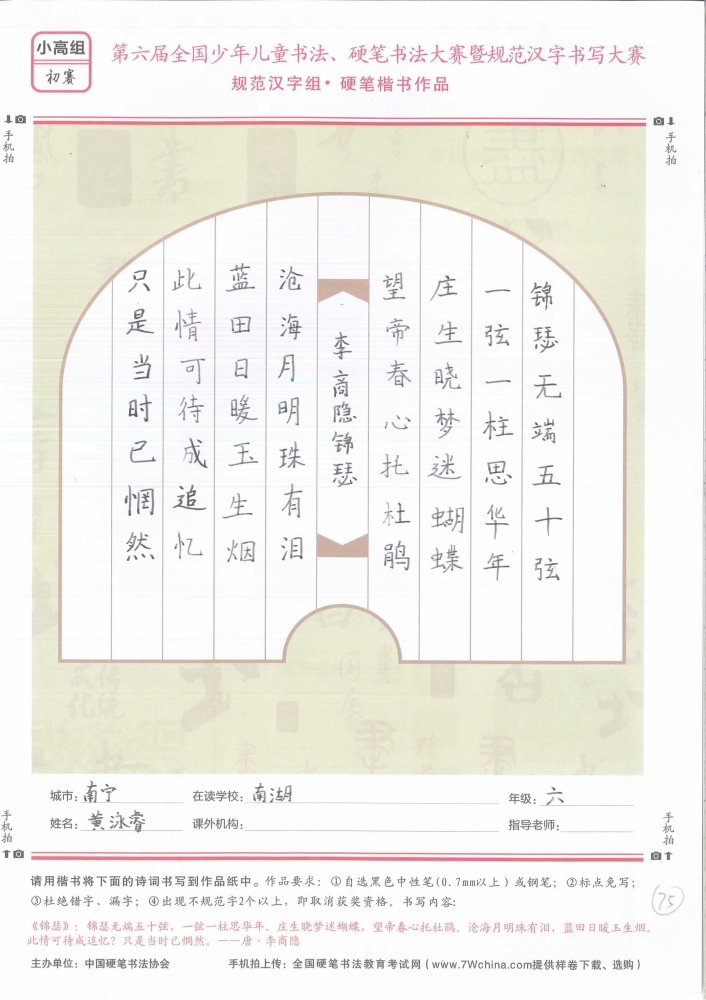 小高组
初赛
第六届全国少年儿童书法、硬笔书法大赛暨规范汉字书写大赛
规范汉字组·硬笔楷书作品
手机拍
手机拍
锦瑟无端五十弦
一弦一柱思华年
庄生晓梦迷蝴蝶
望帝春心托杜鹃
李商隐锦瑟
沧海月明珠有泪
蓝田日暖玉生烟
此情可待成追忆
只是当时已惘然
城市：南宁 在读学校：南湖 年级：六
姓名：黄泳睿 课外机构： 指导老师：
手机拍
手机拍
请用楷书将下面的诗词书写到作品纸中。作品要求：①自选黑色中性笔(0.7mm以上)或钢笔；②标点免写；
③杜绝错字、漏字；④出现不规范字2个以上，即取消获奖资格。书写内容：
75
《锦瑟》：锦瑟无端五十弦，一弦一柱思华年。庄生晓梦迷蝴蝶，望帝春心托杜鹃。沧海月明珠有泪，蓝田日暖玉生烟。
此情可待成追忆？只是当时已惘然。——唐·李商隐
主办单位：中国硬笔书法协会 手机拍上传：全国硬笔书法教育考试网(www.7Wchina.com提供样卷下载、选购)